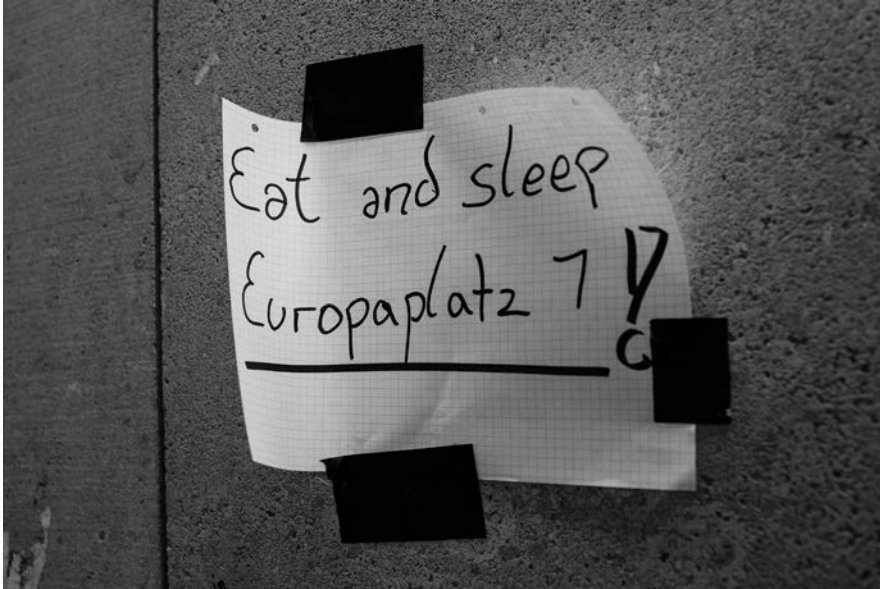 Eat and sleep
Europaplatz 1!